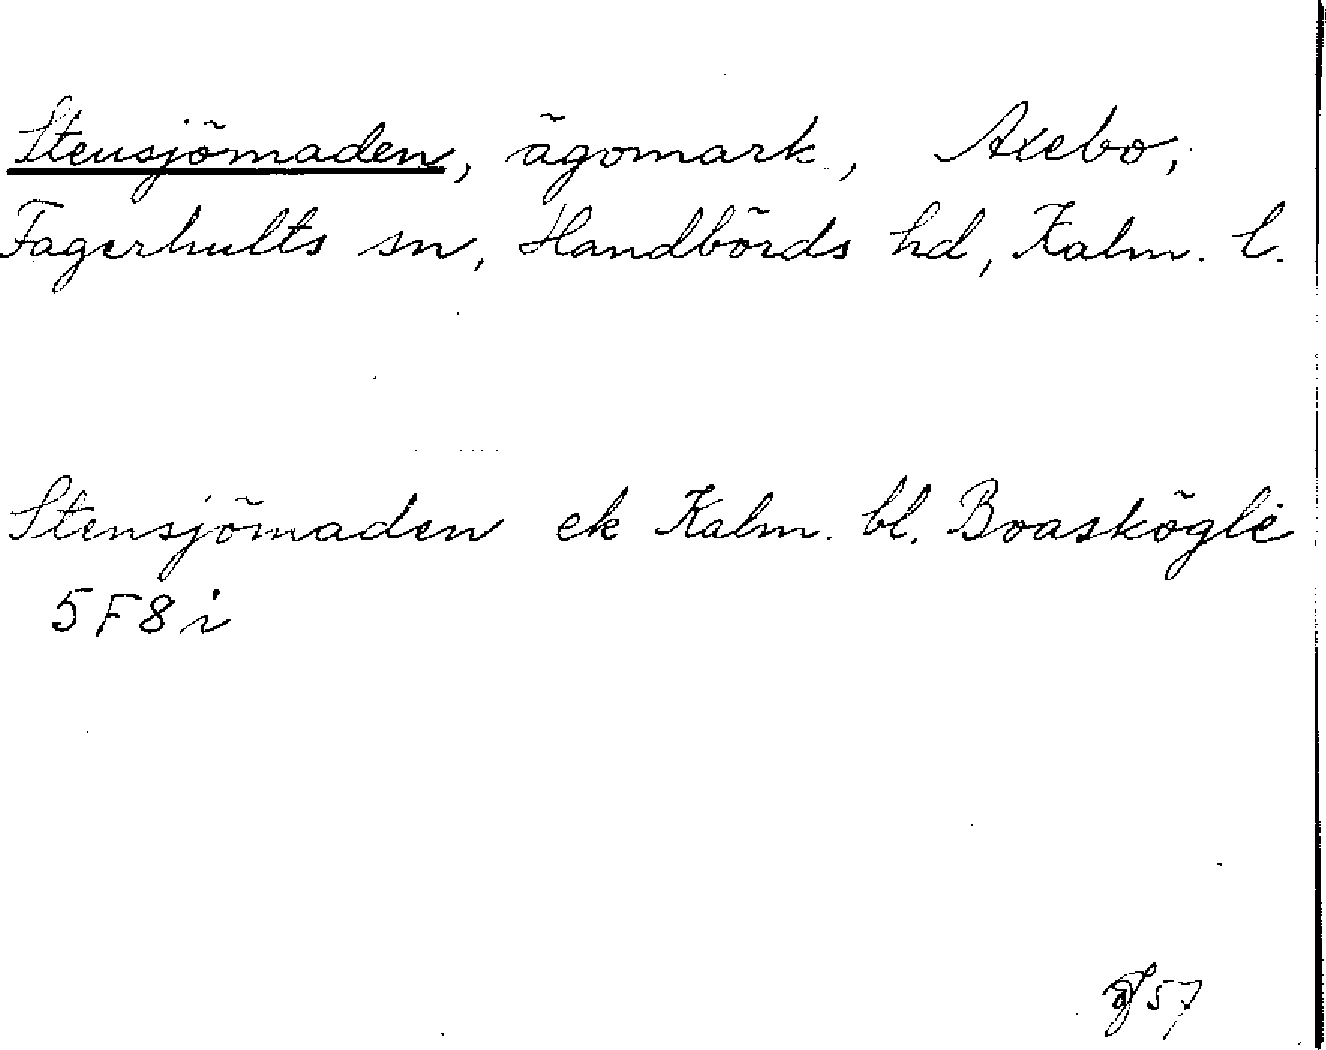 Stensjömaden, ägomark, Axebo,
Fagerhults sn, Handbörds hd, Kalm. l.
Stensjömaden ek Kalm. bl. Boaskögle
5F8i
57